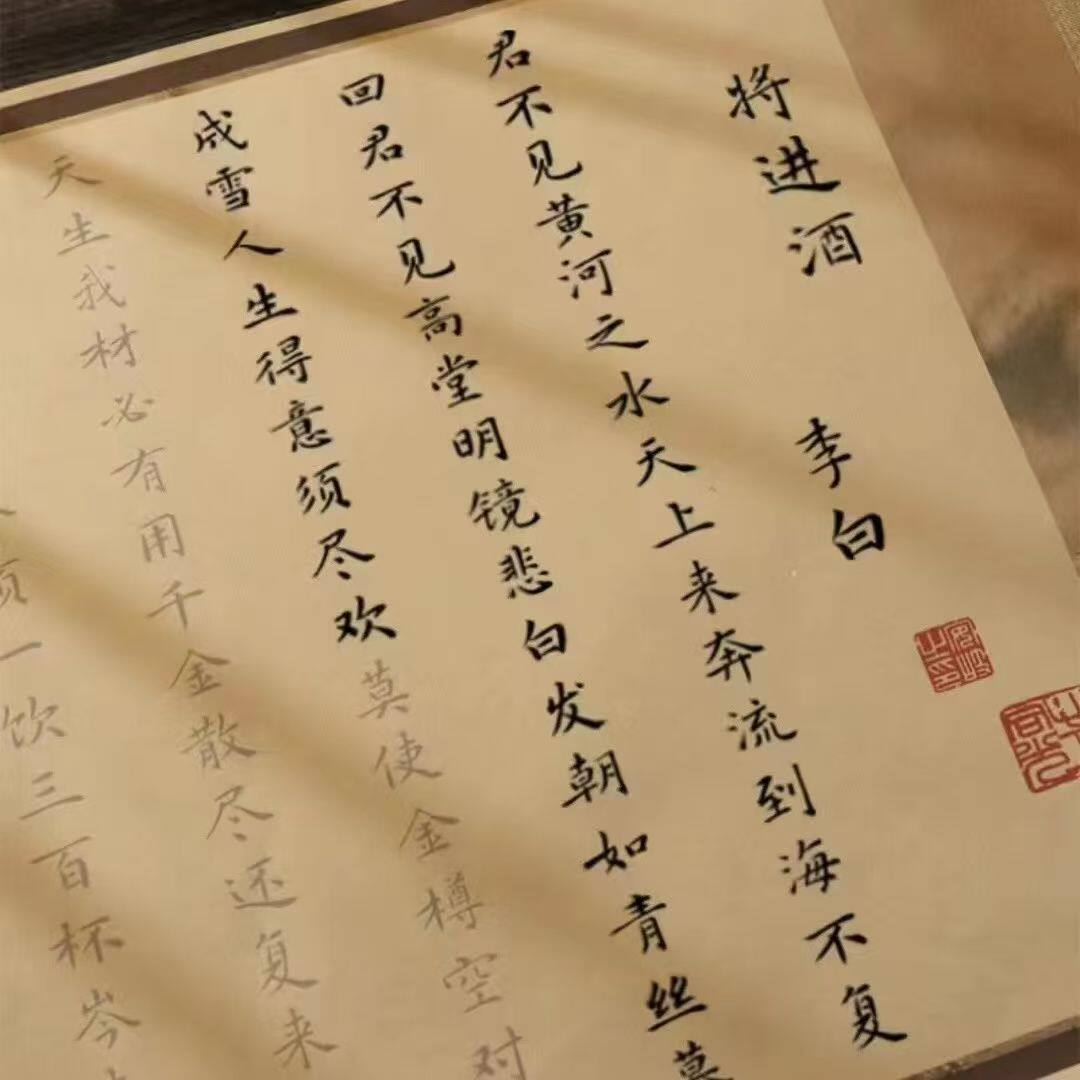 将进酒 李白
君不见黄河之水天上来奔流到海不复
回君不见高堂明镜悲白发朝如青丝暮
成雪人生得意须尽欢莫使金樽空对
天生我材必有用千金散尽还复来
须一饮三百杯岑